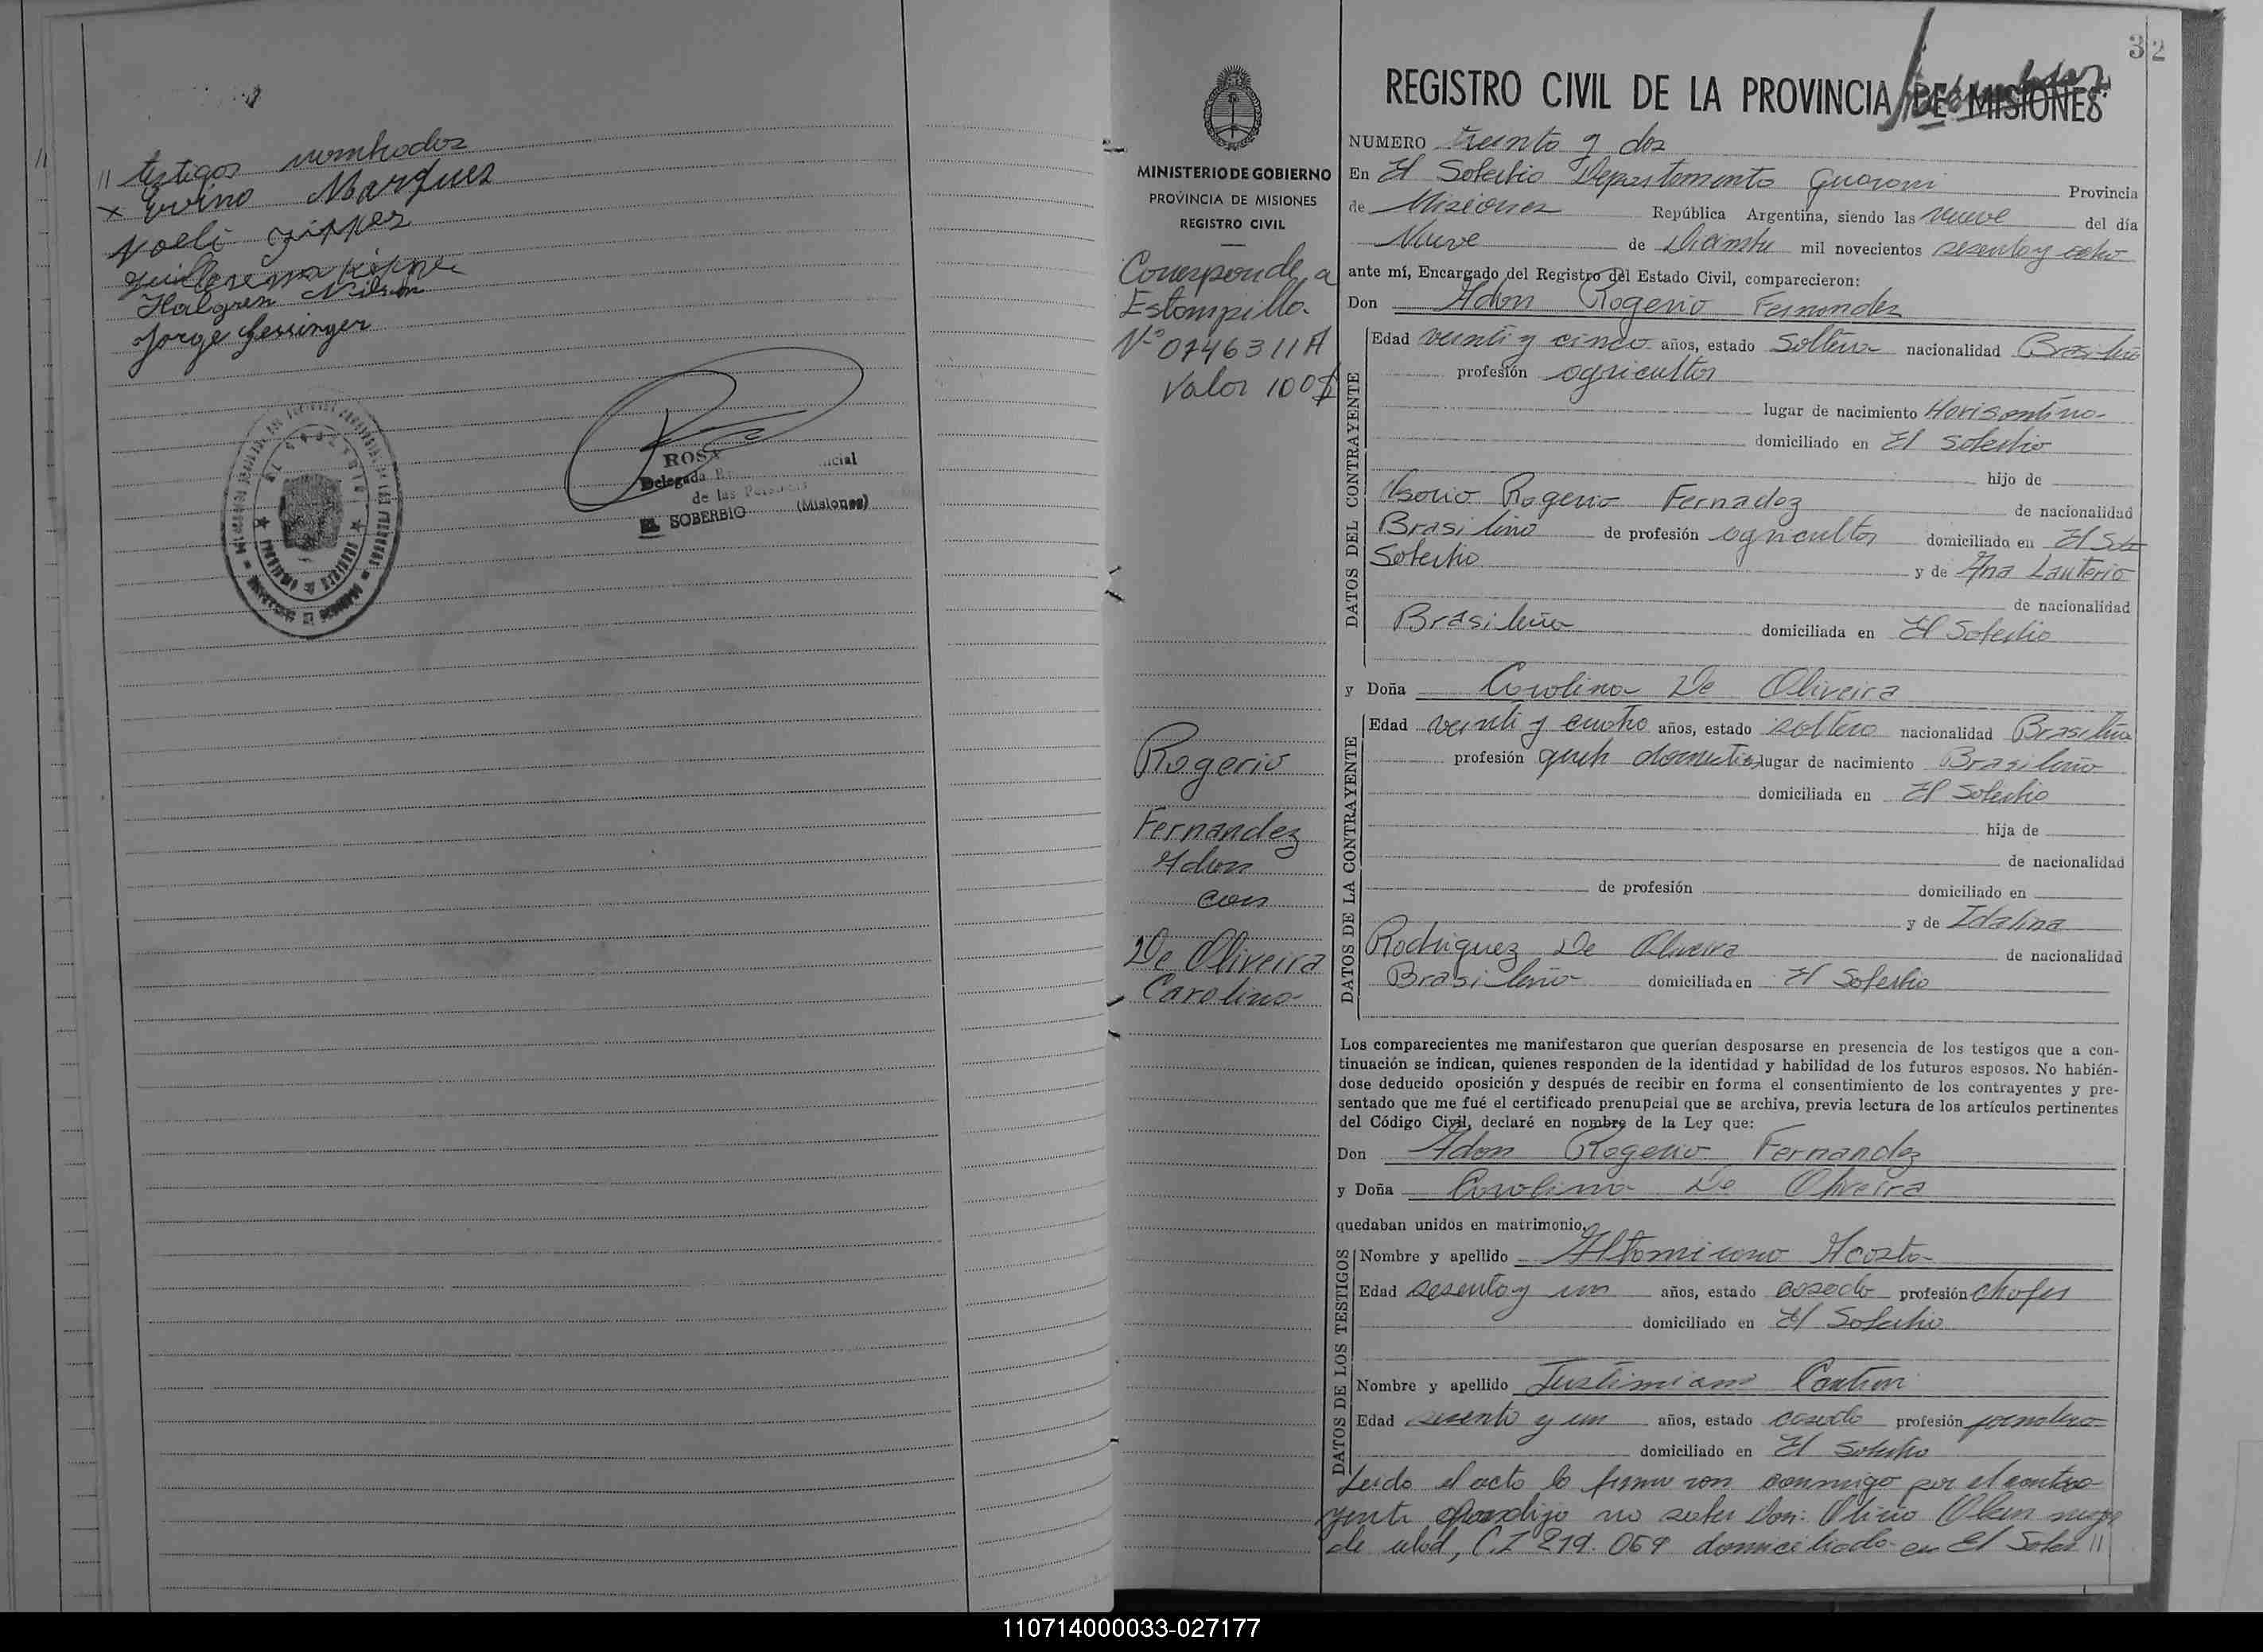 // testigos nombrados
x Ervino Marques
Noeli Zipper
Halgren Nilson
Jorge Gessinger
ROSA
Delegada
de las
EL SOBERBIO (Misiones)
32
REGISTRO CIVIL DE LA PROVINCIA DE MISIONES
MINISTERIO DE GOBIERNO
PROVINCIA DE MISIONES
REGISTRO CIVIL
Corresponde a
Estampilla
Nº 0746311A
Valor 100$
Rogerio
Fernandez
Adon
con
De Oliveira
Carolina
NUMERO treinta y dos
En El Soberbio Departamento Guarani Provincia
de Misiones República Argentina, siendo las nueve del día
Nueve de Diciembre mil novecientos sesenta y ocho
ante mí, Encargado del Registro del Estado Civil, comparecieron:
Don Adon Rogerio Fernandez
DATOS DEL CONTRAYENTE
Edad veinti y cinco años, estado Soltero nacionalidad Brasileño
profesión agricultor
lugar de nacimiento Horisontino
domiciliado en El Soberbio
hijo de
Rogerio Fernadez de nacionalidad
Brasileño de profesión agricultor domiciliado en El Sob
Soberbio y de Ana Lauterio
de nacionalidad
Brasileña domiciliada en El Soberbio
y Doña Carolina De Oliveira
DATOS DE LA CONTRAYENTE
Edad veinti y cuatro años, estado soltera nacionalidad Brasileña
profesión lugar de nacimiento Brasileña
domiciliada en El Soberbio
hija de
de nacionalidad
de profesión domiciliado en
y de Idalina
Rodriguez De Oliveira de nacionalidad
Brasileña domiciliada en El Soberbio
Los comparecientes me manifestaron que querían desposarse en presencia de los testigos que a con-
tinuación se indican, quienes responden de la identidad y habilidad de los futuros esposos. No habién-
dose deducido oposición y después de recibir en forma el consentimiento de los contrayentes y pre-
sentado que me fué el certificado prenupcial que se archiva, previa lectura de los artículos pertinentes
del Código Civil, declaré en nombre de la Ley que:
Don Adon Rogerio Fernandez
y Doña Carolina De Oliveira
quedaban unidos en matrimonio.
DATOS DE LOS TESTIGOS
Nombre y apellido Altamirano Acosta
Edad sesenta y un años, estado casado profesión chofer
domiciliado en El Soberbio
Nombre y apellido Justimiano
Edad sesenta y un años, estado casado profesión jornalero
domiciliado en El Soberbio
Leido el acta la firmaron conmigo por el contra-
yente no saber Don:
de edad, C.I 219.069 domiciliado en El Sober //
110714000033-027177